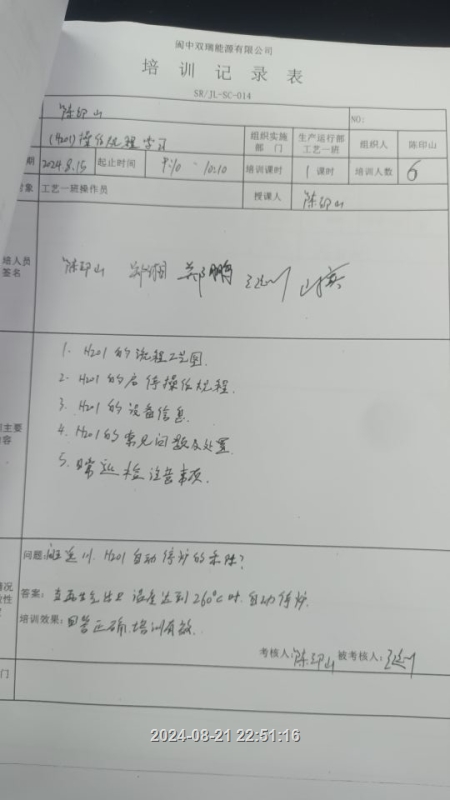 阆中双瑞能源有限公司
培训记录表
SR/JL-SC-014
陈印山 NO:
(H201)操作规程学习 组织实施部门 生产运行部工艺一班 组织人 陈印山
期 2024.8.15 起止时间 9:10 - 10:10 培训课时 1课时 培训人数 6
对象 工艺一班操作员 授课人 陈印山
培人员签名 陈印山 郑鹏
1. H201的流程工艺图.
2. H201的启停操作规程.
3. H201的设备信息.
4. H201的常见问题及处置.
5. 日常巡检注意事项.
主要
容
问题: H201自动停炉的条件?
答案: 温度达到260℃时.自动停炉.
培训效果: 回答正确.培训有效.
考核人: 陈印山 被考核人:
门
2024-08-21 22:51:16